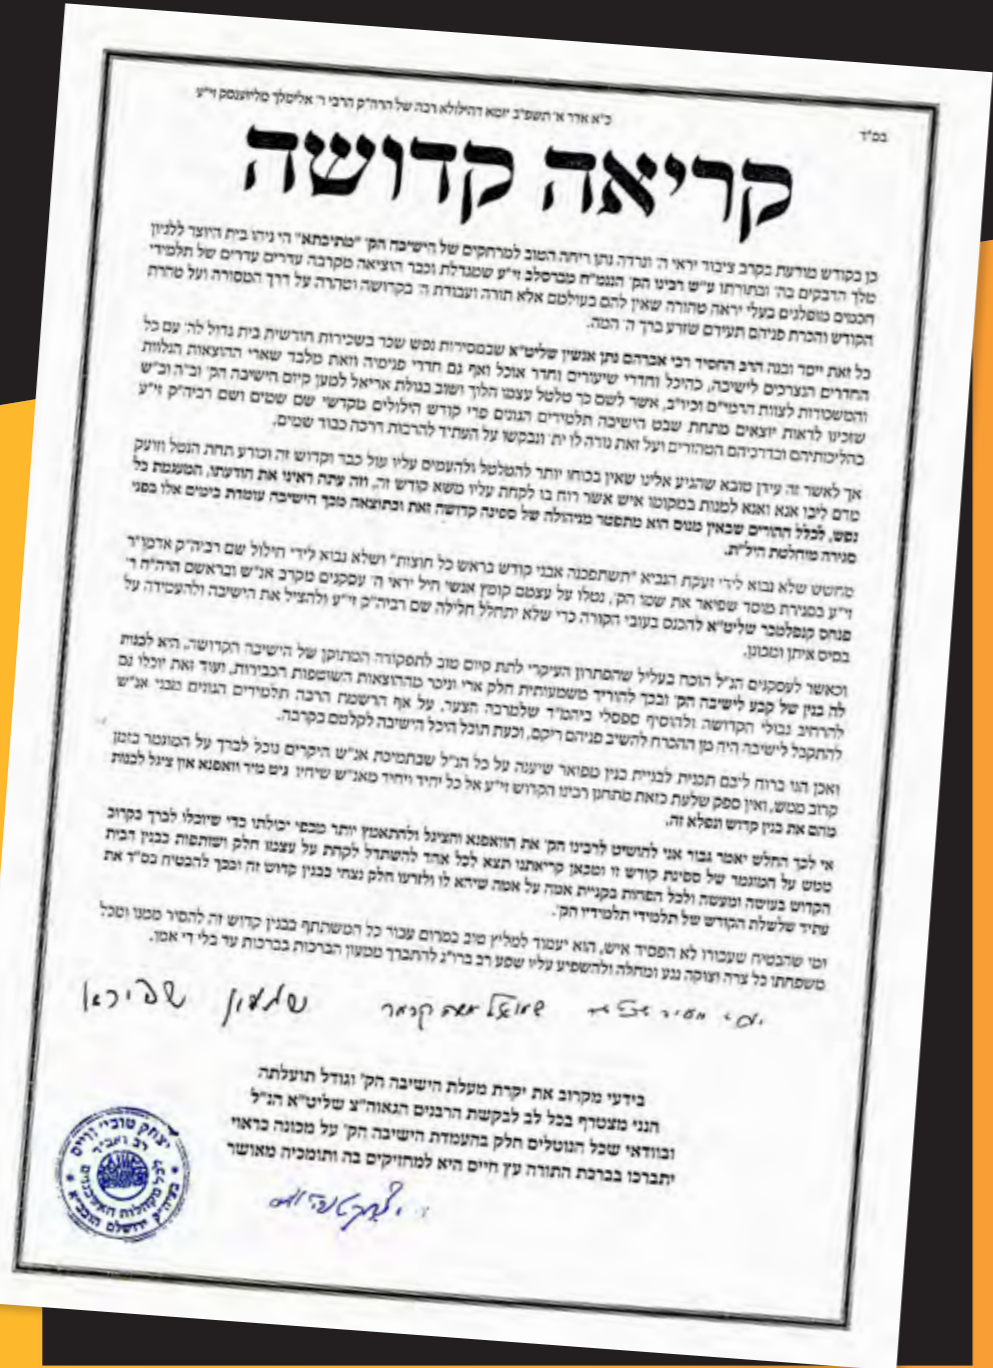 בס"ד
כ"א אדר א' תשפ"ב יומא דהילולא רבה של הרה"ק הרבי ר' אלימלך מליזענסק זי"ע
קריאה קדושה
כן בקודש מודעת בקרב ציבור יראי ה' ונרדה נתן ריחה הטוב למרחקים של הישיבה הק' "מתיבתא" הי ניהו בית היוצר ללגיון
מלך הדבקים בה' ובתורתו ע"ש רבינו הק' הננמ"ח מברסלב זי"ע שמגדלת וכבר הוציאה מקרבה עדרים עדרים של תלמידי
חכמים מופלגים בעלי יראה טהורה שאין להם בעולמם אלא תורה ועבודת ה' בקדושה וטהרה על דרך המסורה ועל טהרת
הקודש והכרת פניהם תעידם שזרע ברך ה' המה.
כל זאת ייסד ובנה הרב החסיד רבי אברהם נתן אנשין שליט"א שבמסירות נפש שכר בשכירות חודשית בית גדול לה' עם כל
החדרים הנצרכים לישיבה, כהיכל וחדרי שיעורים וחדר אוכל ואף גם חדרי פנימיה וזאת מלבד שארי ההוצאות הנלוות
והמשכורות לצוות הרמי"ם וכיו"ב, אשר לשם כך טלטל עצמו הלוך ושוב בגולת אריאל למען קיום הישיבה הק' וב"ה וב"ש
שזכינו לראות יוצאים מתחת שבט הישיבה תלמידים הגונים פרי קודש הילולים מקדשי שם שמים ושם רביה"ק זי"ע
בהליכותיהם ובדרכיהם הטהורים ועל זאת נודה לו ית' ונבקשו על העתיד להרבות דרכה כבוד שמים.
אך לאשר זה עידן טובא שהגיע אלינו שאין בכוחו יותר להטלטל ולהעמיס עליו עול כבד וקדוש זה וכורע תחת הנטל וזועק
מדם ליבו אנא ואנא למנות במקומו איש אשר רוח בו לקחת עליו משא קודש זה, וזה עתה ראינו את הודעתו, המעגמת כל
נפש, לכלל ההורים שבאין מנוס הוא מתפטר מניהולה של ספינה קדושה זאת וכתוצאה מכך הישיבה עומדת בימים אלו בפני
סגירה מוחלטת היל"ת.
מחשש שלא נבוא לידי זעקת הנביא "תשתפכנה אבני קודש בראש כל חוצות" ושלא נבוא לידי חילול שם רביה"ק אדמו"ר
זי"ע בסגירת מוסד שפיאר את שמו הק', נטלו על עצמם קומץ אנשי חיל יראי ה' עסקנים מקרב אנ"ש ובראשם הרה"ח ר'
פנחס קנפלמכר שליט"א להכנס בעובי הקורה כדי שלא יתחלל חלילה שם רביה"ק זי"ע ולהציל את הישיבה ולהעמידה על
בסיס איתן ומכונן.
וכאשר לעסקנים הנ"ל הוכח בעליל שהפתרון העיקרי לתת קיום טוב לתפקודה המתוקן של הישיבה הקדושה, היא לבנות
לה בנין של קבע לישיבה הק' ובכך להוריד משמעותית חלק ארי וניכר מההוצאות השוטפות הכבירות, ועוד זאת יוכלו גם
להרחיב גבולי הקדושה ולהוסיף ספסלי ביהמ"ד שלמרבה הצער, על אף הרשמת הרבה תלמידים הגונים מבני אנ"ש
להתקבל לישיבה היה מן ההכרח להשיב פניהם ריקם, וכעת תוכל היכל הישיבה לקלטם בקרבה.
ואכן הגו ברוח ליבם תכנית לבניית בנין מפואר שיענה על כל הנ"ל שבתמיכת אנ"ש היקרים נוכל לברך על המוגמר בזמן
קרוב ממש, ואין ספק שלעת כזאת מתחנן רבינו הקדוש זי"ע אל כל יחיד ויחיד מאנ"ש שיחיו: גיט מיר וואפנא און ציגל לבנות
מהם את בנין קדוש ונפלא זה.
אי לכך החלש יאמר גבור אני להושיט לרבינו הק' את הוואפנא והציגל ולהתאמץ יותר מכפי יכולתו כדי שיוכלו לברך בקרוב
ממש על המוגמר של ספינת קודש זו ומכאן קריאתנו תצא לכל אחד להשתדל לקחת על עצמו חלק ושותפות בבנין הבית
הקדוש בעושה ומעשה ולכל הפחות בקניית אמה על אמה שיהא לו ולזרעו חלק נצחי בבנין קדוש זה ובכך להבטיח בס"ד את
עתיד שלשלת הקודש של תלמידי תלמידיו הק'.
ומי שהבטיח שעבורו לא הפסיד איש, הוא יעמוד למליץ טוב במרום עבור כל המשתתף בבנין קדוש זה להסיר ממנו ומכל
משפחתו כל צרה וצוקה נגע ומחלה ולהשפיע עליו שפע רב ברו"ג להתברך ממעון הברכות בברכות עד בלי די אמן.
שמואל משה קרמר שמעון שפירא
בידעי מקרוב את יקרת מעלת הישיבה הק' וגודל תועלתה
הנני מצטרף בכל לב לבקשת הרבנים הגאוה"צ שליט"א הנ"ל
ובוודאי שכל הנוטלים חלק בהעמדת הישיבה הק' על מכונה כראוי
יתברכו בברכת התורה עץ חיים היא למחזיקים בה ותומכיה מאושר
יצחק טובי' ווייס
רב ואב"ד
לכל מקהלות האשכנזים
בעיה"ק ירושלם תובב"א